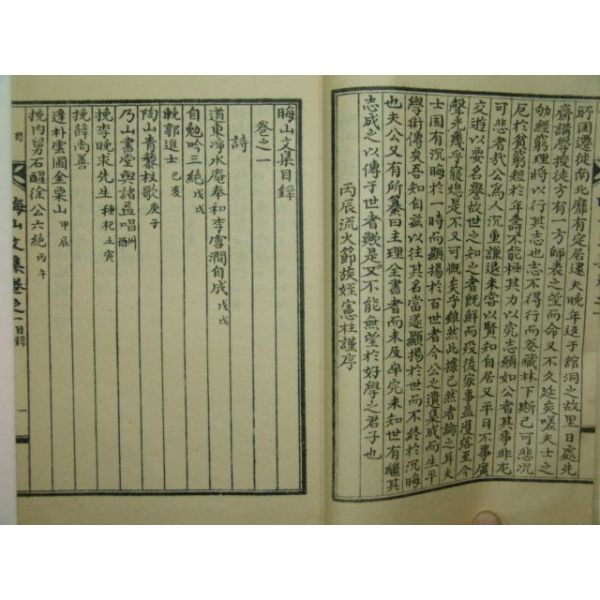 躬困遷徙南北靡有定居逮夫晚年返于館洞之故里日處先
齋講學授徒方有一方師表之望而命又不久延矣嗟夫士之
劬經窮理將以行其志也志不得行而卷藏林下斯已可悲況
厄於貧窮短於年壽不能極其力以究志願如公者其事非尤
可悲者哉公爲人沉重謙退未嘗以賢知自居又平日不事廣
交遊以要名譽故世之知之者旣鮮而歿後家事益漼落至今
聲光幾乎寢熄是不又可慨矣乎雖然此據已然者論之耳夫
士固有沉晦於一時而顯揚於百世者今公之遺集成而生平
學術傳矣吾自玆以往其名當遂顯揚於世而不終於沉晦
也夫公又有所纂曰主理全書者而未及卒完未知世有繼其
志成之以傳于世者歟是又不能無望於好學之君子也
丙辰流火節族姪憲柱謹序
晦山文集目錄
卷之一
詩
道東淨水庵奉和李雪澗自成 戊戌
自勉吟三絶 戊戌
輓郭進士 己亥
陶山青藜杖歌 庚子
乃山書堂與諸益唱酬
挽李晚求先生 種杞 壬寅
挽薛尚善
逢朴雲圃金栗山 甲辰
挽內舅石醒徐公六絶 丙午
晦山文集卷之一 目錄 一